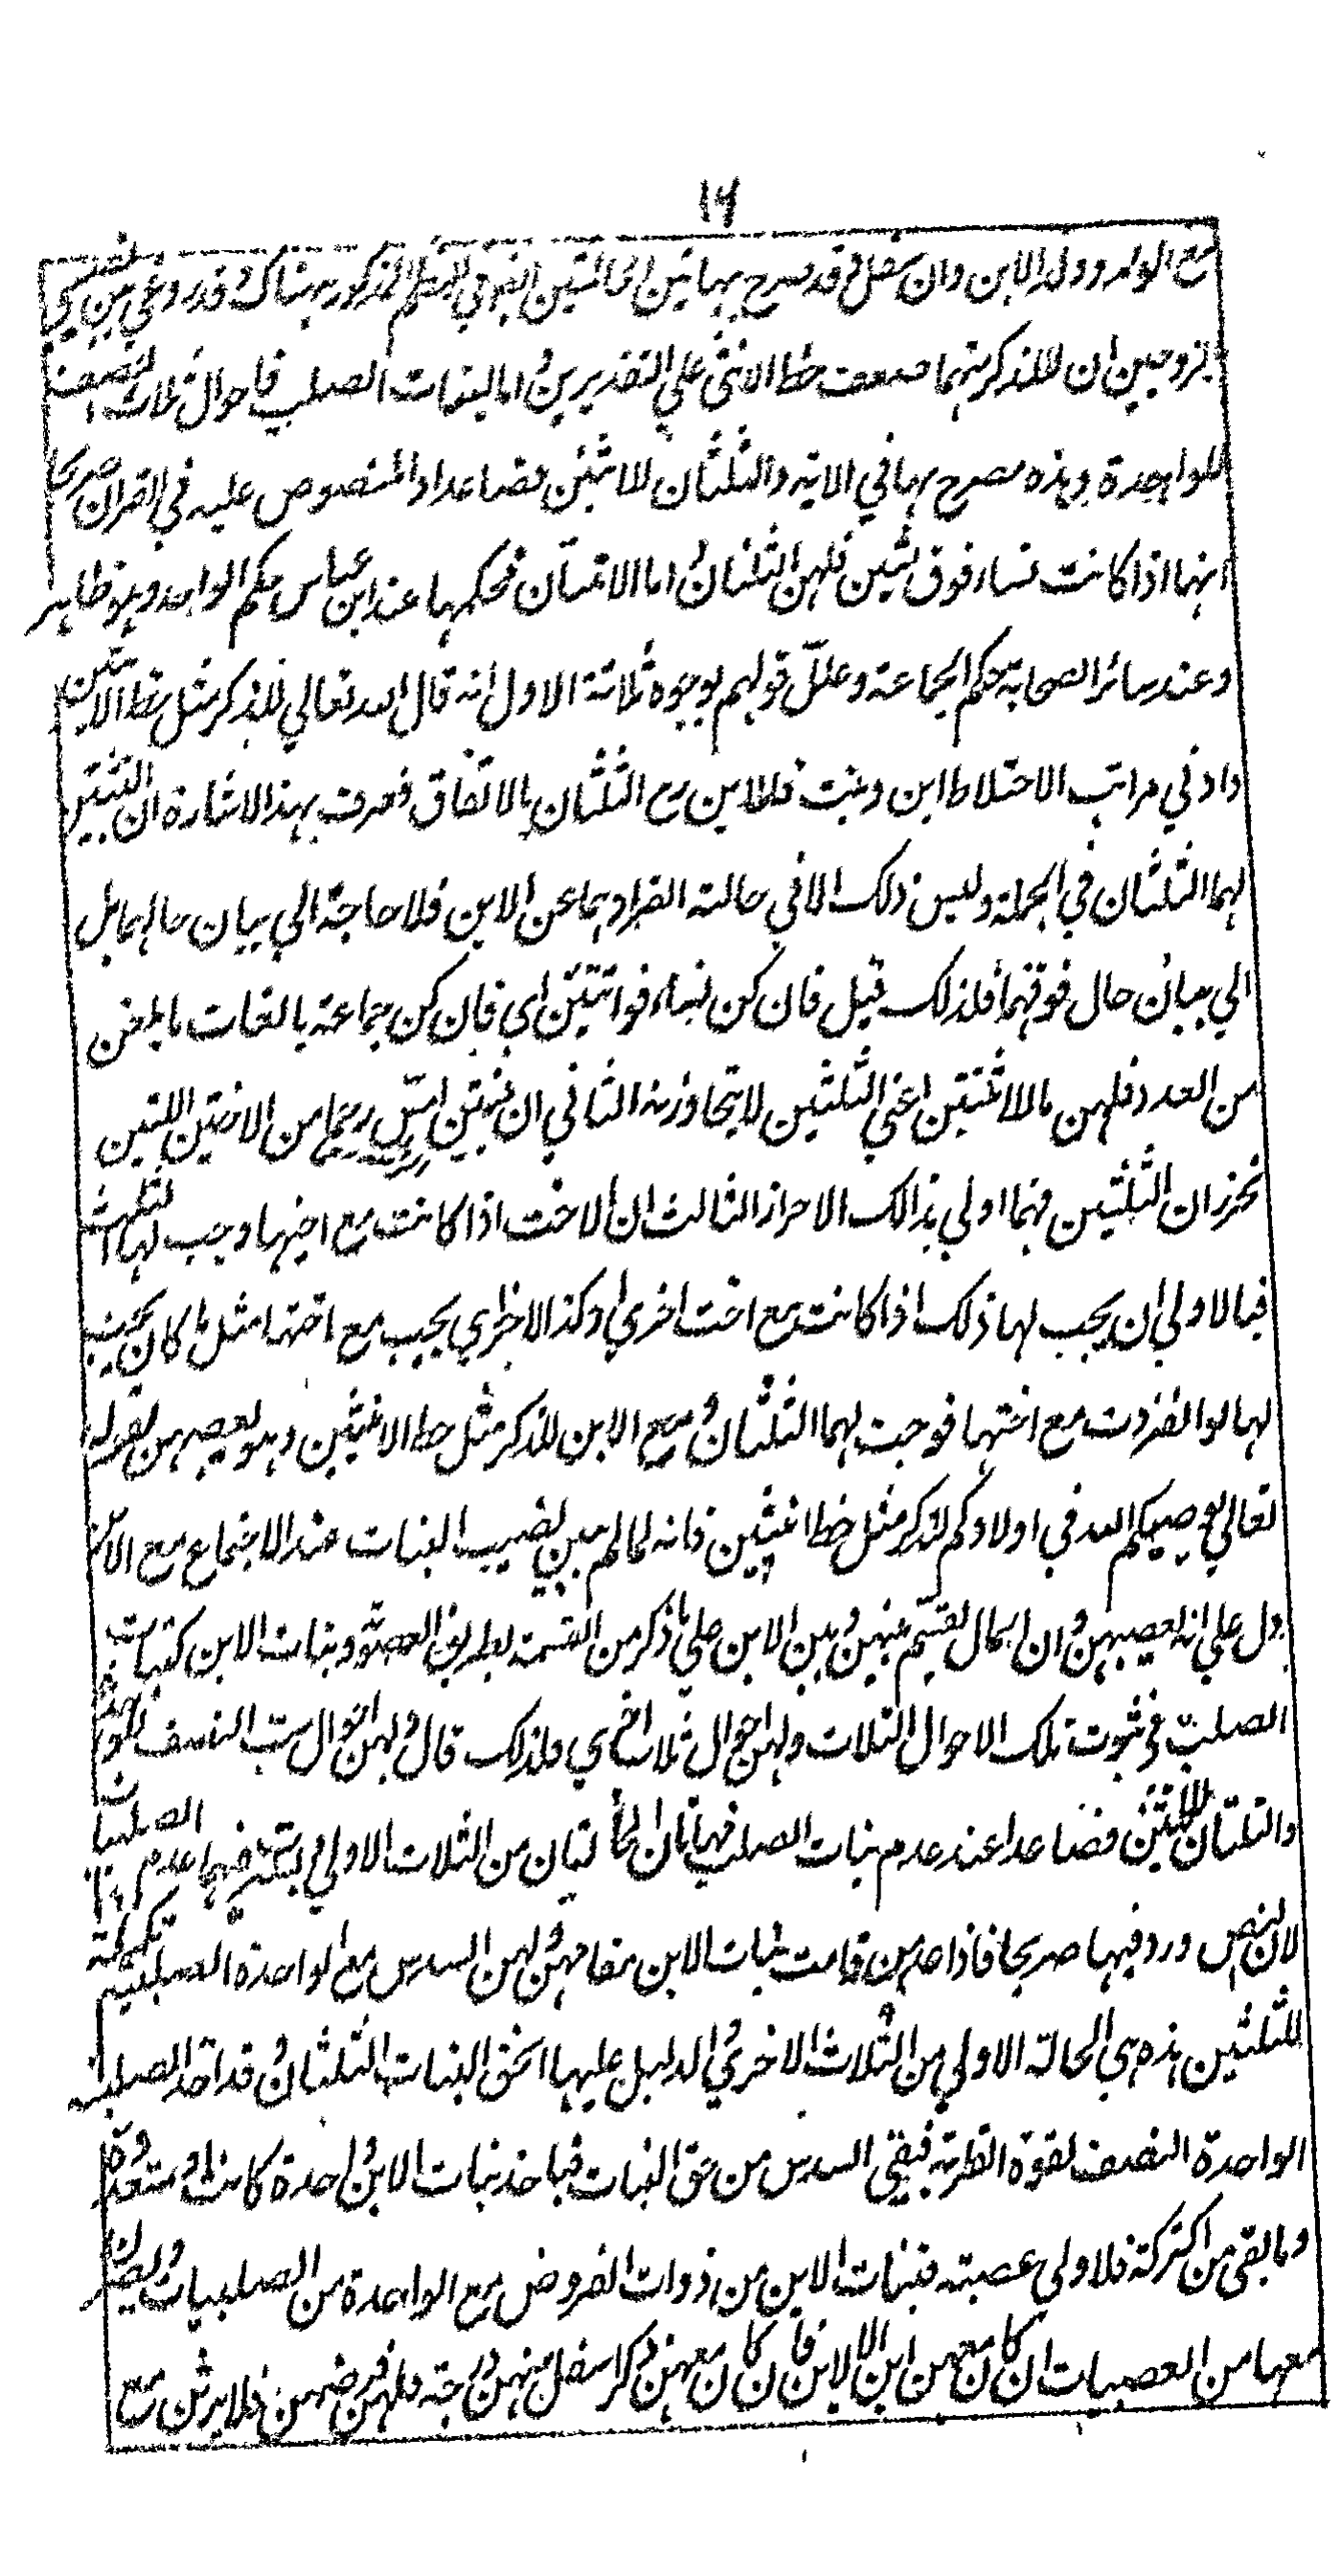 ١٦
مع الولد وولد الابن وان سفل قد صرح بهاتين الحالتين في النظم المذكور هناك وقد روعي بين نصيبي
الزوجين ان للذكر منهما ضعف حظ الانثى علي التقديرين واما لبنات الصلب فاحوال ثلاث النصف
للواحدة وهذه مصرح بها في الاية والثلثان للاثنين فصاعدا والمنصوص عليه في القران صريحا
انها اذا كانت نساء فوق اثنتين فلهن الثلثان واما الاثنتان فحكمهما عند ابن عباس حكم الواحد وهو ظاهر
وعند سائر الصحابة حكم الجماعة وعلل قولهم بوجوه ثلاثة الاول انه قال الله تعالي للذكر مثل حظ الانثيين
وادني مراتب الاختلاط ابن وبنت فللابن مع الثلثان بالاتفاق فعرف بهذا الاشارة ان البنتين
لهما الثلثان في الجملة وليس ذلك الا في حالة انفرادهما عن الابن فلا حاجة الي بيان حالهما بل
الي بيان حال فوقهما فلذلك قيل فان كن نساء فوق اثنتين اي فان كن جماعة بالغات ما بلغن
من العدد فلهن ما للاثنتين اعني الثلثين لا يتجاوزنه الثاني ان البنتين امس رحما من الاختين اللتين
تحرزان الثلثين فهما اولي بذالك الاحراز الثالث ان الاخت اذا كانت مع اخيها وجب لها الثلث
فبالاولي ان يجب لها ذلك اذا كانت مع اخت اخري وكذا الاخري يجب مع اختها مثل ما كان يجب
لها لو انفردت مع اختها فوجب لهما الثلثان ومع الابن للذكر مثل حظ الانثيين وهو يعصبهن لقوله
تعالي يوصيكم الله في اولادكم للذكر مثل حظ انثيين فانه لما لم يبين نصيب البنات عند الاجتماع مع الابن
دل علي انه يعصبهن وان المال يقسم بينهن وبين الابن علي ما ذكر من القسمة بطريق العصوبة وبنات الابن كبنات
الصلب في ثبوت تلك الاحوال الثلاث ولهن احوال ثلاث اخري فلذلك قال ولهن احوال ست النصف للواحدة
والثلثان للاثنتين فصاعدا عند عدم بنات الصلب فهاتان الحالتان من الثلاث الاولي ويشترط فيهما عدم الصلبيات
لان النص ورد فيها صريحا فاذا عدمن قامت بنات الابن مقامهن ولهن السدس مع الواحدة الصلبية تكملة
للثلثين هذه هي الحالة الاولي من الثلاث الاخري والدليل عليها ان حق البنات الثلثان وقد اخذ الصلبية
الواحدة النصف لقوة القرابة فبقي السدس من حق البنات فياخذ بنات الابن واحدة كانت او متعددة
وما بقي من التركة فلاولي عصبته فبنات الابن من ذوات الفروض مع الواحدة من الصلبيات ويصرن
معها من العصبات ان كان معهن ابن الابن فان كان معهن ذكر اسفل منهن درجة فلهن فرضهن فلا يرثن مع